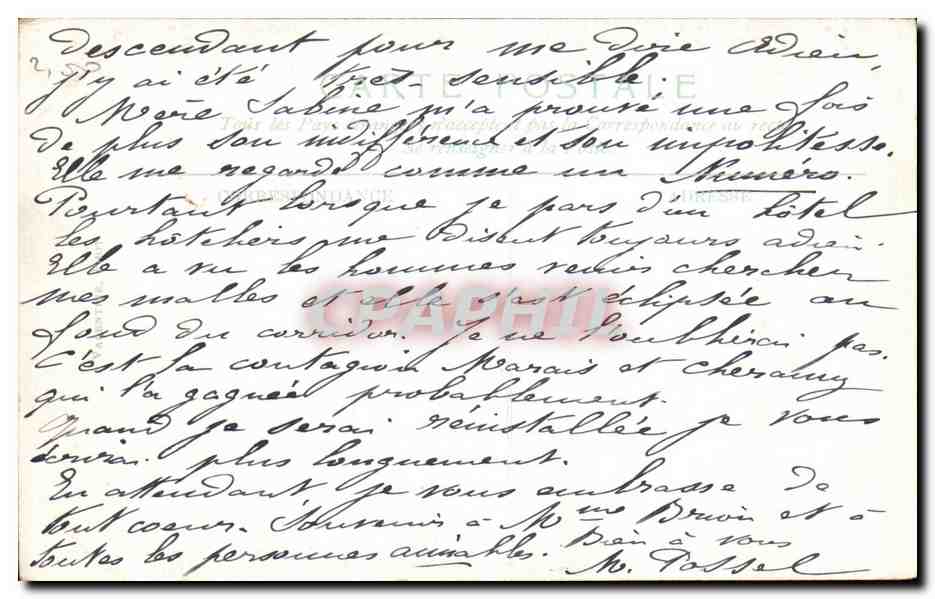 descendant pour me dire adieu,
j'y ai été très sensible.
2,50
CARTE POSTALE
Mère Sabine m'a prouvé une fois
Tous les Pays n'acceptent pas la Correspondance au recto
de plus son indifférence et son impolitesse.
Se renseigner à la Poste
Elle me regarde comme un Numéro.
CORRESPONDANCE ADRESSE
Pourtant lorsque je pars d'un hôtel
les hôteliers me disent toujours adieu.
Elle a vu les hommes venir chercher
mes malles et elle s'est éclipsée au
CPAPHIL
fond du corridor. Je ne l'oublierai pas.
C'est la contagion Marais et Cheramy
qui l'a gagnée probablement.
Quand je serai réinstallée je vous
écrirai plus longuement.
En attendant je vous embrasse de
tout coeur. Souvenir à Mme Brion et à
toutes les personnes aimables. Bien à vous
M. Possel